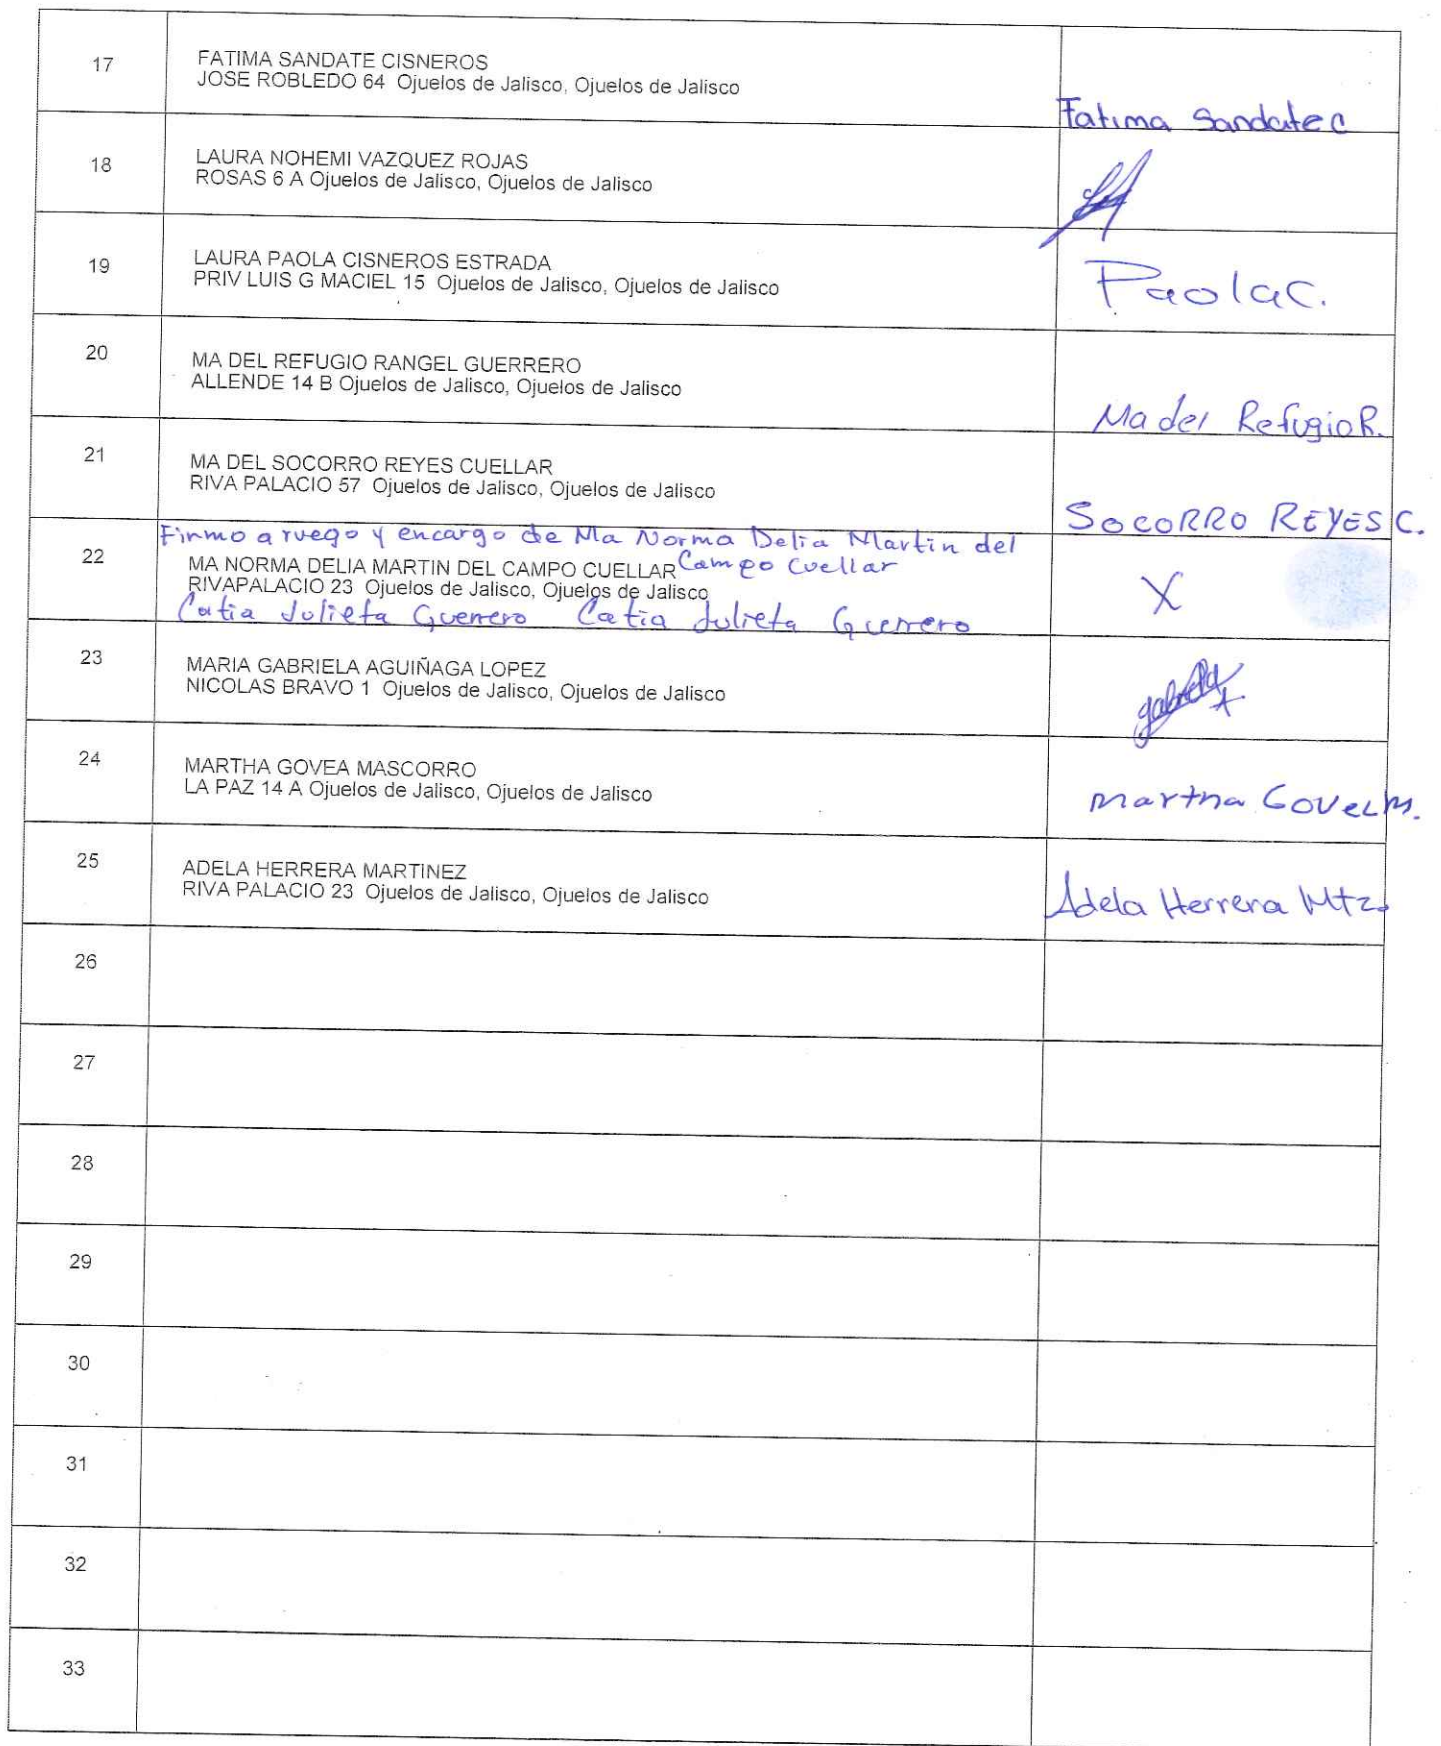 17
FATIMA SANDATE CISNEROS
JOSE ROBLEDO 64 Ojuelos de Jalisco, Ojuelos de Jalisco
Fatima Sandate C
18
LAURA NOHEMI VAZQUEZ ROJAS
ROSAS 6 A Ojuelos de Jalisco, Ojuelos de Jalisco
19
LAURA PAOLA CISNEROS ESTRADA
PRIV LUIS G MACIEL 15 Ojuelos de Jalisco, Ojuelos de Jalisco
Paola C.
20
MA DEL REFUGIO RANGEL GUERRERO
ALLENDE 14 B Ojuelos de Jalisco, Ojuelos de Jalisco
Ma del Refugio R.
21
MA DEL SOCORRO REYES CUELLAR
RIVA PALACIO 57 Ojuelos de Jalisco, Ojuelos de Jalisco
SOCORRO REYES C.
Firmo a ruego y encargo de Ma Norma Delia Martin del
22
MA NORMA DELIA MARTIN DEL CAMPO CUELLAR Campo Cuellar
RIVAPALACIO 23 Ojuelos de Jalisco, Ojuelos de Jalisco
X
Catia Julieta Guerrero Catia Julieta Guerrero
23
MARIA GABRIELA AGUIÑAGA LOPEZ
NICOLAS BRAVO 1 Ojuelos de Jalisco, Ojuelos de Jalisco
gabriela A
24
MARTHA GOVEA MASCORRO
LA PAZ 14 A Ojuelos de Jalisco, Ojuelos de Jalisco
Martha Govea M.
25
ADELA HERRERA MARTINEZ
RIVA PALACIO 23 Ojuelos de Jalisco, Ojuelos de Jalisco
Adela Herrera Mtz.
26
27
28
29
30
31
32
33